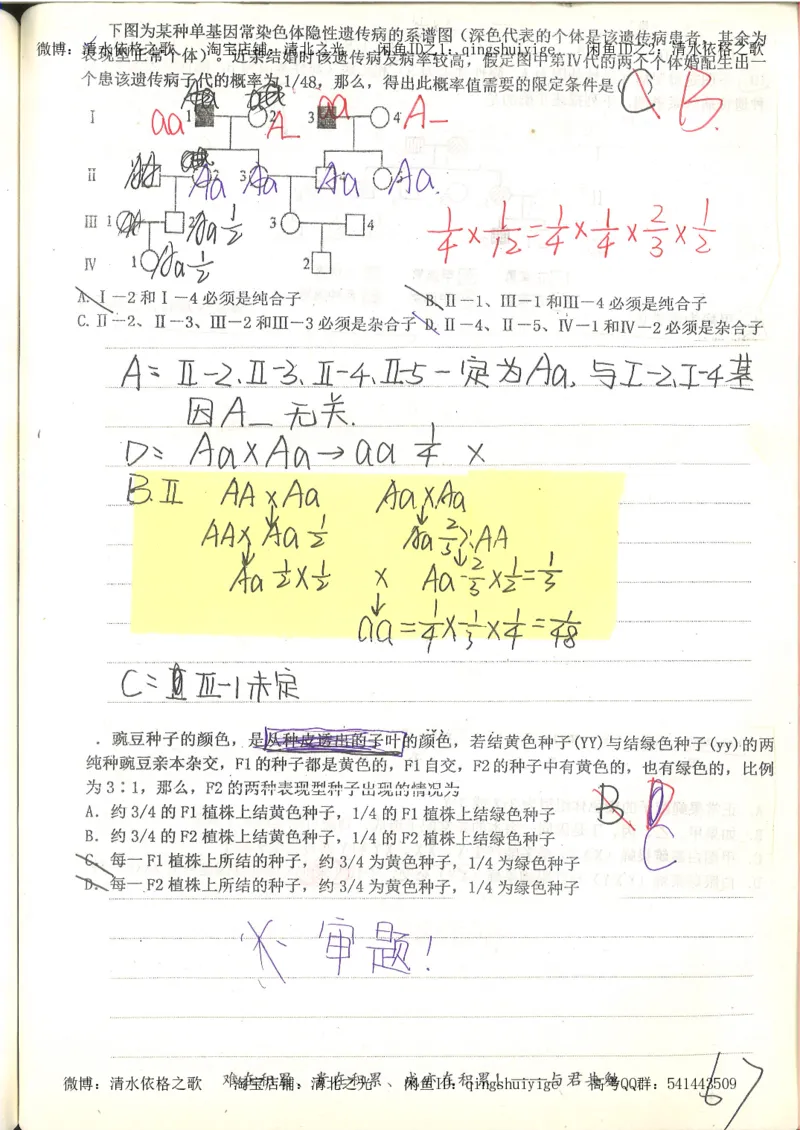 下图为某种单基因常染色体隐性遗传病的系谱图（深色代表的个体是该遗传病患者，其余为
微博：清水依格之歌 淘宝店铺：清北之光 闲鱼ID之1：qingshuiyige 闲鱼ID之2：清水依格之歌
表现型正常个体）。近亲结婚时该遗传病发病率较高，假定图中第Ⅳ代的两个个体婚配生出一
个患该遗传病子代的概率为 1/48，那么，得出此概率值需要的限定条件是（ ） C B
Ⅰ aa 1 2 A_ 3 aa 4 A_
Ⅱ Aa 2 3 Aa Aa Aa
Ⅲ 1 Aa 1/2 3 4
1/4×1/12=1/4×1/4×2/3×1/2
Ⅳ 1 Aa 1/2 2
A. Ⅰ－2和Ⅰ－4必须是纯合子 B. Ⅱ－1、Ⅲ－1和Ⅲ－4必须是纯合子
C. Ⅱ－2、Ⅱ－3、Ⅲ－2和Ⅲ－3必须是杂合子 D. Ⅱ－4、Ⅱ－5、Ⅳ－1和Ⅳ－2必须是杂合子
A= Ⅱ-2、Ⅱ-3、Ⅱ-4、Ⅱ-5一定为Aa，与Ⅰ-2、Ⅰ-4基
因A_无关.
D= Aa×Aa→aa 1/4 ×
B.Ⅱ AA×Aa Aa×Aa
AA× Aa 1/2 Aa 2/3 AA
Aa 1/2×1/2 × Aa 2/3×1/2=1/3
aa=1/4×1/3×1/4=1/48
C= Ⅲ-1未定
．豌豆种子的颜色，是从种皮透出的子叶的颜色，若结黄色种子(YY)与结绿色种子(yy)的两
纯种豌豆亲本杂交，F1的种子都是黄色的，F1自交，F2的种子中有黄色的，也有绿色的，比例
为3∶1，那么，F2的两种表现型种子出现的情况为 B D C
A．约3/4的F1植株上结黄色种子，1/4的F1植株上结绿色种子
B．约3/4的F2植株上结黄色种子，1/4的F2植株上结绿色种子
C．每一F1植株上所结的种子，约3/4为黄色种子，1/4为绿色种子
D．每一F2植株上所结的种子，约3/4为黄色种子，1/4为绿色种子
审题！
难在积累、贵在积累、成亦在积累！——与君共勉
微博：清水依格之歌 淘宝店铺：清北之光 闲鱼ID：qingshuiyige 高考QQ群：541443509
67